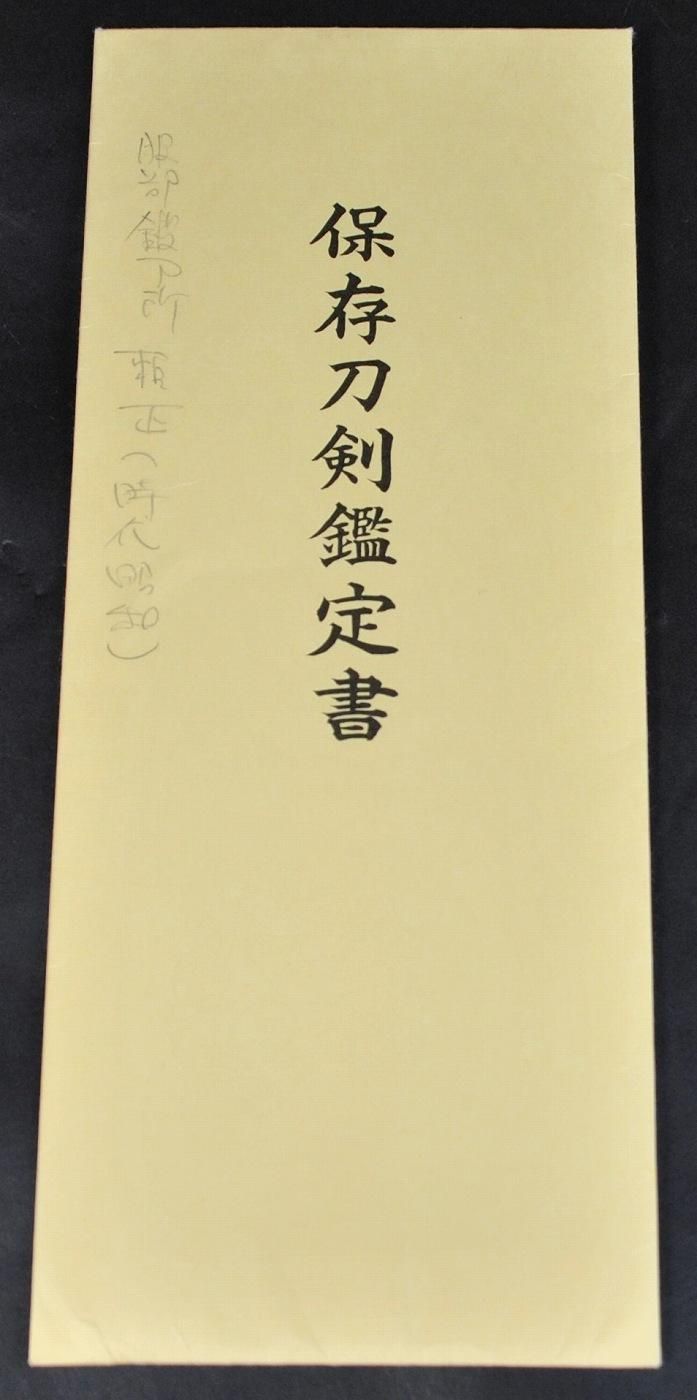 保存刀剣鑑定書
服部鍛刀所 正(時代昭和)